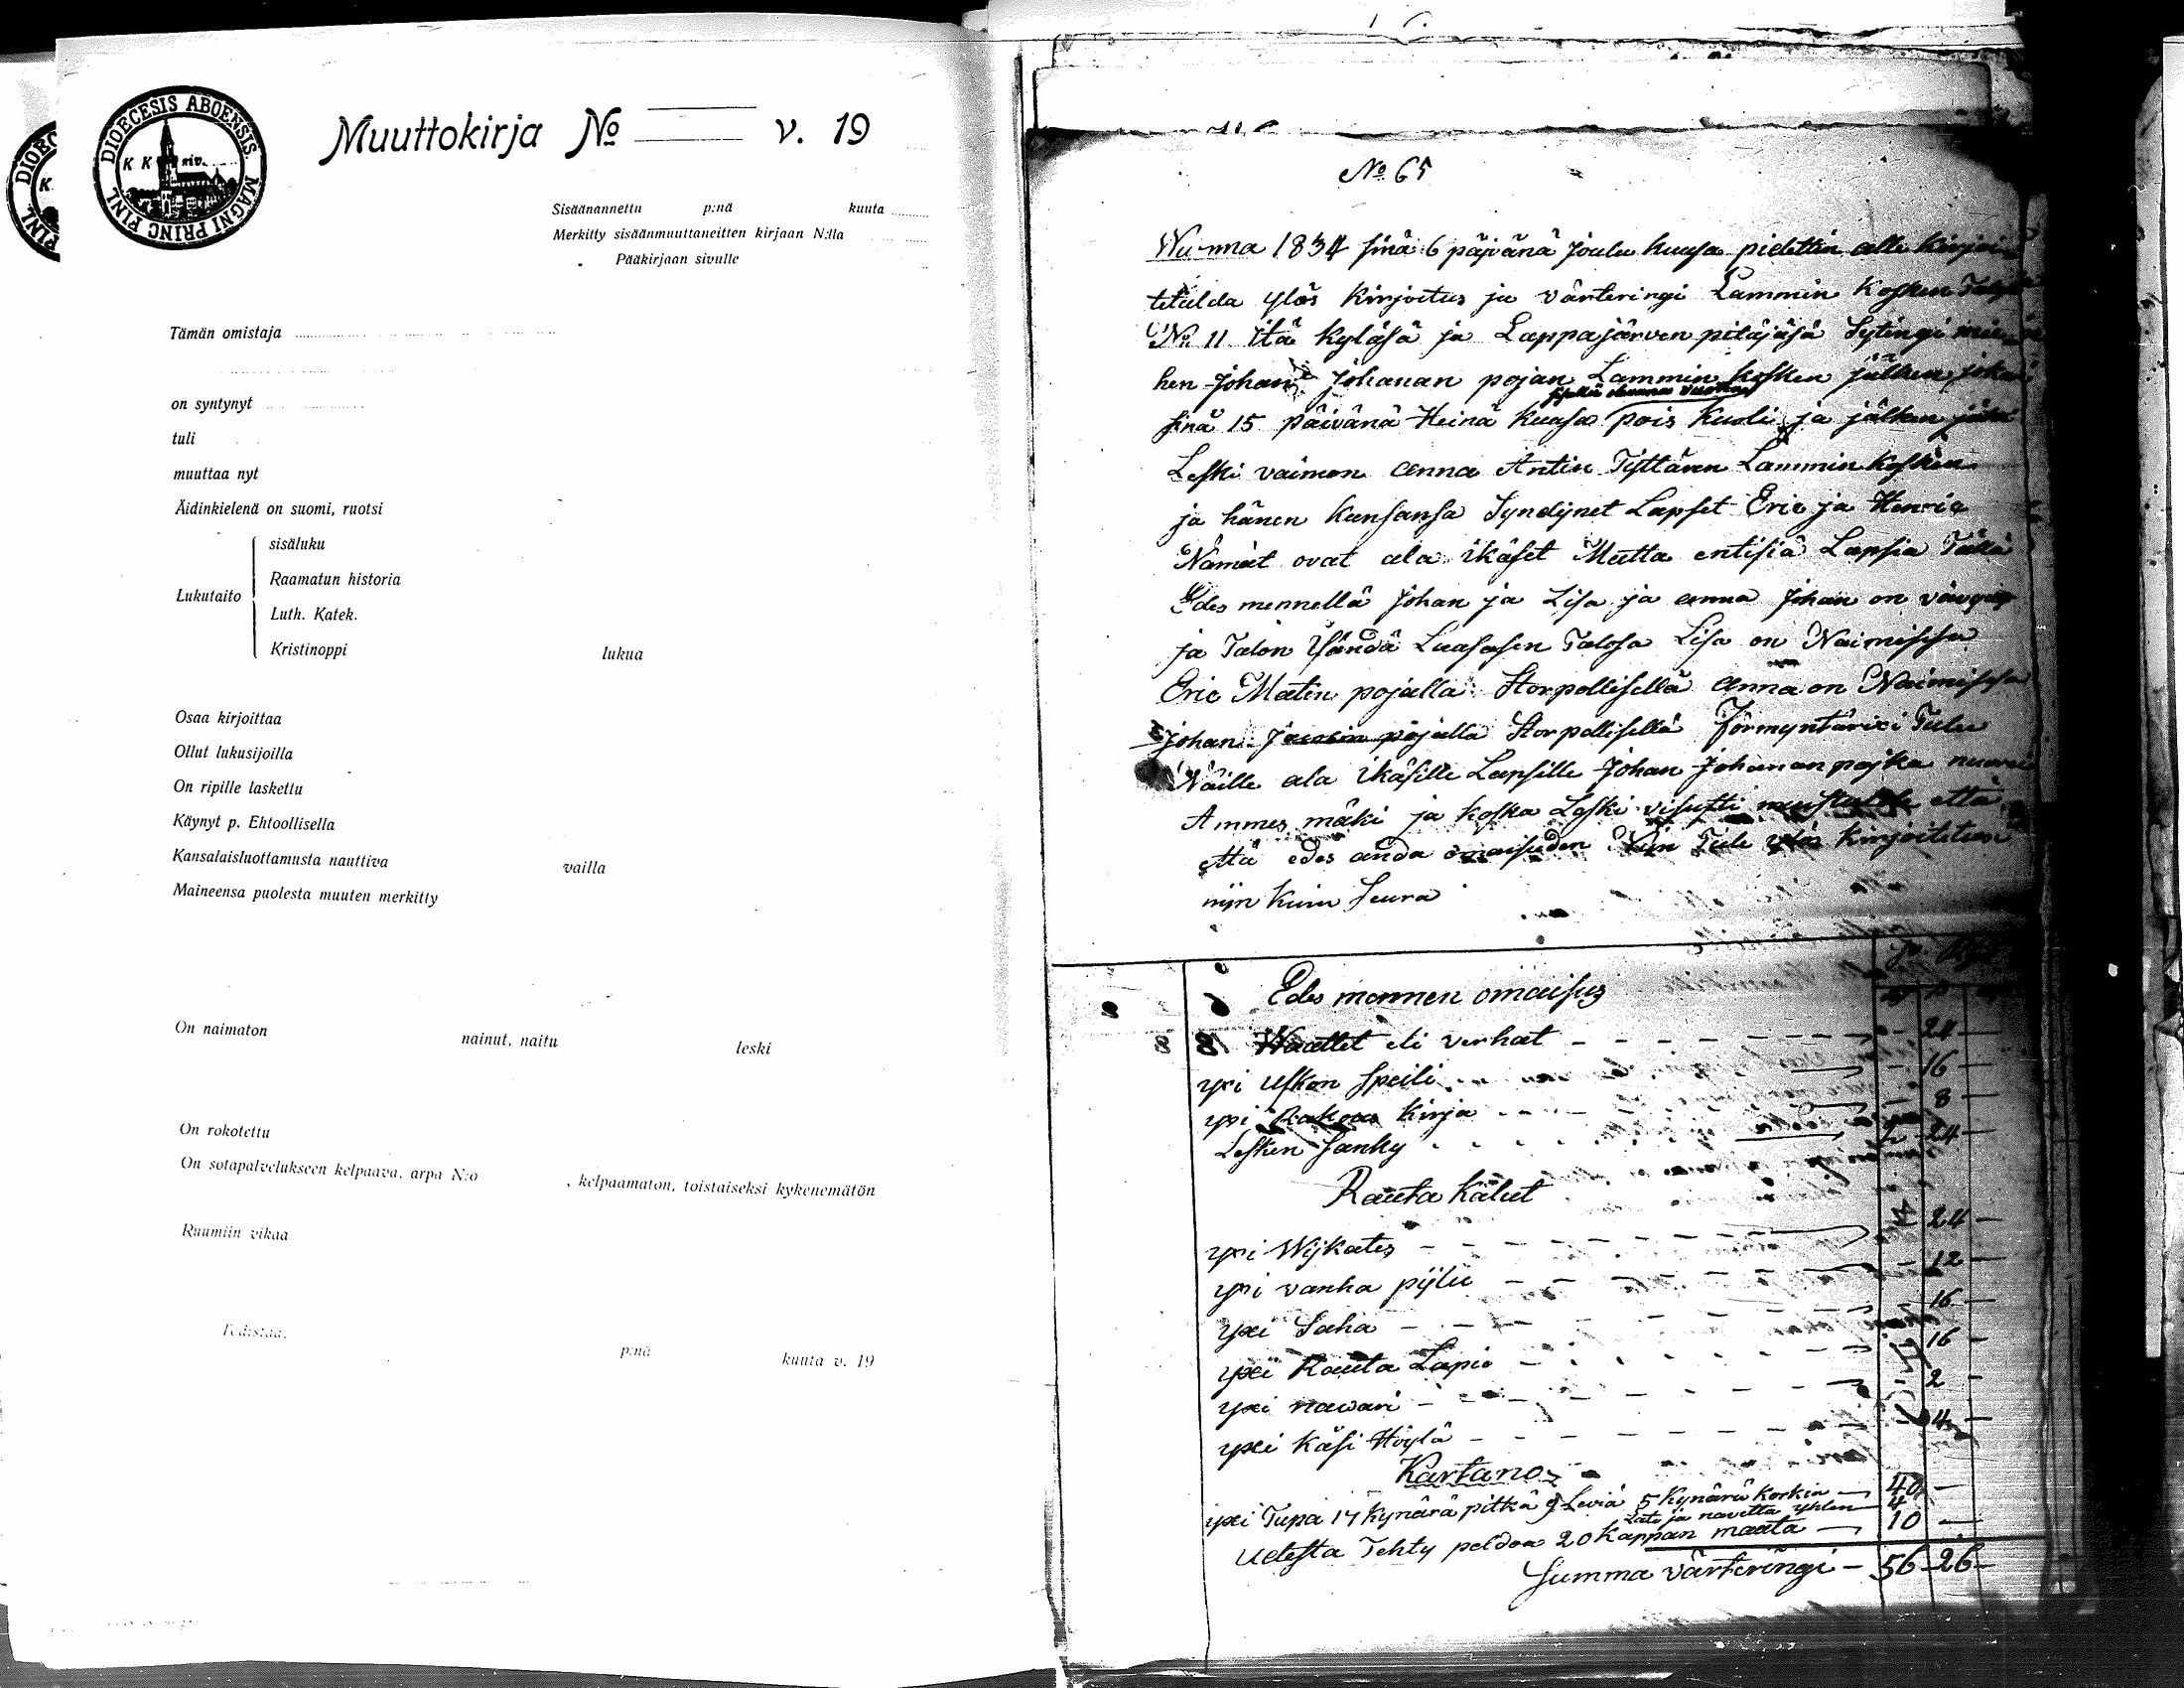 DIOECESIS ABOENSIS. MAGNI PRINC FINL
Muuttokirja No v. 19
Sisäänannettu p:nä kuuta
Merkitty sisäänmuuttaneitten kirjaan N:lla
Pääkirjaan sivulle
Tämän omistaja
on syntynyt
tuli
muuttaa nyt
Äidinkielenä on suomi, ruotsi
sisäluku
Raamatun historia
Lukutaito
Luth. Katek.
Kristinoppi lukua
Osaa kirjoittaa
Ollut lukusijoilla
On ripille laskettu
Käynyt p. Ehtoollisella
Kansalaisluottamusta nauttiva vailla
Maineensa puolesta muuten merkitty
On naimaton nainut, naitu leski
On rokotettu
On sotapalvelukseen kelpaava, arpa N:o , kelpaamaton, toistaiseksi kykenemätön
Ruumiin vikaa
Todistaa,
p:nä kuuta v. 19
No 65
Wunna 1834 sinä 6 päivänä Joulu kuusa pidettin alle kirjoi
tetulda ylös kirjoitus ja värteringi Lammin Kosken
No 11 Itä kyläsä ja Lappajärven pitäjäsä Sytingi
hen Johan Johanan pojan Lammin kosken jälken joka
sinä 15 päivänä Heinä kuusa pois kuoli ja jälken
Leski vaimon Anna Antin Tyttären Lammin kosken
ja hänen kansansa Syndynet Lapset Eric ja Henric
Nämät ovat ala ikäset Mutta entisiä Lapsia
Edes mennellä Johan ja Lisa ja Anna Johan on
ja Talon Isändä Luasasen Talosa Lisa on Naimisisa
Eric Matin pojalla Storpellisellä Anna on Naimisisa
Johan pojalla Storpellisellä Förmyntärixi Tulu
Näille ala ikäsille Lapsille Johan Johanan pojka
Ammes mäki ja koska Leski visusti että
että edes anda omaisuden Niin Tule ylös kirjoitetuxi
niin kuin Seura
Edes mennen omaisus
8 8 Waattet eli verhat - 24 -
yxi Uskon speili - 16 -
yxi kirja - 8 -
Lesken Sänky 24 -
Rauta Kalut
yxi Wijkates - 24 -
yxi vanha pijlu - 12 -
yxi Saha - 16 -
yxi Rauta Lapio - 16 -
yxi nawari - 2 -
yxi Käsi Höylä - 4 -
Kartano
yxi Tupa 14 kynärä pitkä 9 Leviä 5 Kynärä korkia - 40 -
Lato ja navetta yhten 4
Udesta Tehty peldoa 20 Kappan maata - 10 -
Summa värteringi - 56 - 26 -